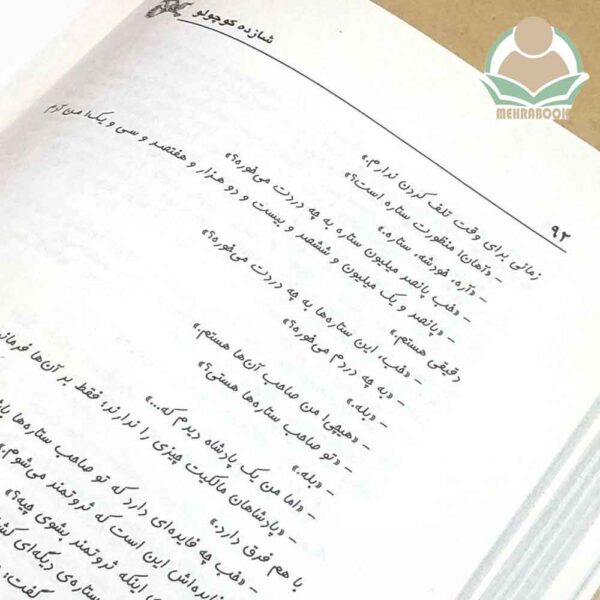 MEHRABOOK
شازده کوچولو
۹۲
زمانی برای وقت تلف کردن ندارم.»
- «آهان! منظورت ستاره است؟»
- «آره، خودشه، ستاره.»
- «خب پانصد میلیون ستاره به چه دردت می‌خوره؟»
- «پانصد و یک میلیون و ششصد و بیست و دو هزار و هفتصد و سی و یک! من آدم
دقیقی هستم.»
- «خب، این ستاره‌ها به چه دردت می‌خوره؟»
- «به چه دردم می‌خوره؟»
- «بله.»
- «هیچی! من صاحب آن‌ها هستم.»
- «تو صاحب ستاره‌ها هستی؟»
- «بله.»
- «اما من یک پادشاه دیدم که...»
- «پادشاهان مالکیت چیزی را ندارند؛ فقط بر آن‌ها
با هم فرق دارد.»
- «خب چه فایده‌ای دارد که تو صاحب ستاره‌ها
این است که ثروتمند می‌شوم.»
اینکه ثروتمند بشوی چیه؟»
ستاره‌ی دیگه‌ای
گفت: